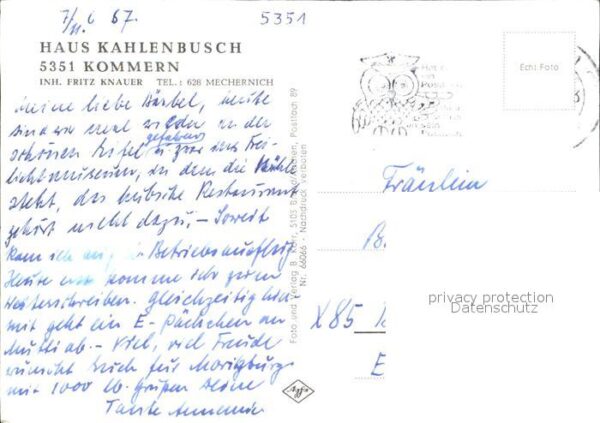 7/11. 67.
5351
HAUS KAHLENBUSCH
5351 KOMMERN
INH. FRITZ KNAUER TEL.: 628 MECHERNICH
Meine liebe Bärbel, heute
sind wir mal wieder in der
schönen Eifel gefahren u. zwar ins Frei-
lichtmuseum, in dem die Mühle
steht, das hübsche Restaurant
gehört nicht dazu, – Soweit
kam ich am Betriebsausflug
Heute erst komme ich zum
Weiterschreiben. Gleichzeitig hier-
mit geht ein E-Päckchen an
Mutti ab. – Viel, viel Freude
wünscht Euch für Moritzburg
mit 1000 lb. Grüßen Deine
Tante Annemie
Foto und Verlag B. Kühn, 5105 B. Postfach 89
Nr. 66066 - Nachdruck verboten
Agfa
Echt Foto
Fräulein
B.
X85
E
privacy protection
Datenschutz